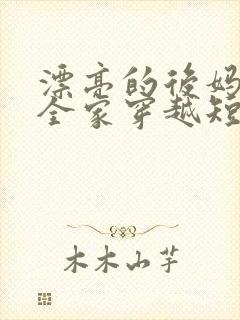 漂亮的後妈
全家穿越短
木木山芋